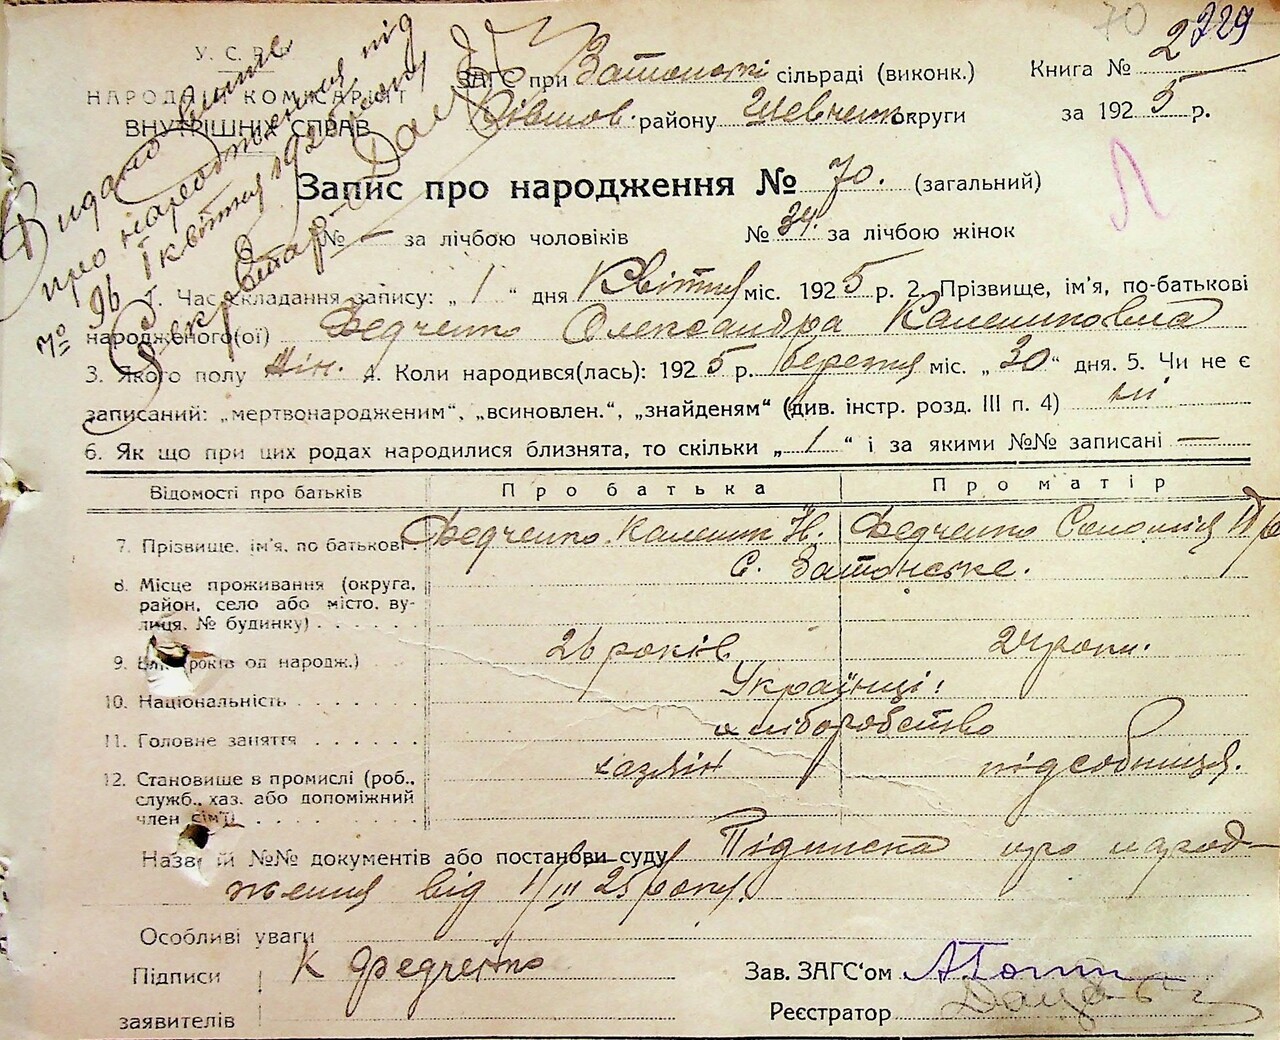 70 2729
У. С. Р. Р.
НАРОДНІЙ КОМІСАРІЯТ
ВНУТРІШНІХ СПРАВ
Видано витяг
про народження під
№ 96 1 квітня 1925 року
Секретар
ЗАГС при Затонські сільраді (виконк.)
району Шевченк. округи
Книга № 2
за 1925 р.
Запис про народження № 70. (загальний)
№ — за лічбою чоловіків № 34. за лічбою жінок
1. Час складання запису: „ 1 “ дня Квітня міс. 1925 р. 2. Прізвище, ім’я, по-батькові
народженого(ої) Федченко Олександра Калениковна
3. Якого полу жін. 4. Коли народився(лась): 1925 р. березня міс. „ 30 “ дня. 5. Чи не є
записаний: „мертвонародженим“, „всиновлен.“, „знайденям“ (див. інстр. розд. III п. 4) ні
6. Як що при цих родах народилися близнята, то скільки „ 1 “ і за якими №№ записані —
Відомості про батьків Про батька Про матір
7. Прізвище, ім’я, по батькові. Федченко Каленик Н. Федченко Соломія
8. Місце проживання (округа, С. Затонське.
район, село або місто, ву-
лиця, № будинку)
9. Вік (років од народж.) 26 років 24 роки.
10. Національність Українці
11. Головне заняття хліборобство
12. Становище в промислі (роб., хазяїн підсобниця.
служб., хаз. або допоміжний
член сім’ї)
Назва й №№ документів або постанови суду Підписка про народ-
ження від 1/III 25 року.
Особливі уваги
Підписи К Федченко Зав. ЗАГС‘ом
заявителів Реєстратор